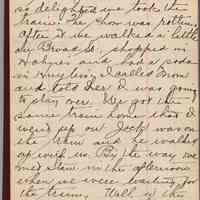 so delighted we took the
train. The show was rotten.
After it we walked a little
up Broad St., shopped in
Hahnes and had a soda
in Huylers, I called Mom
and told her I was going
to stay over. We got the
same train home that I
went up on. Jack was on
the train and he walked
up with us. By the way we
met Stan in the afternoon
when we were waiting for
the train. Well, at the